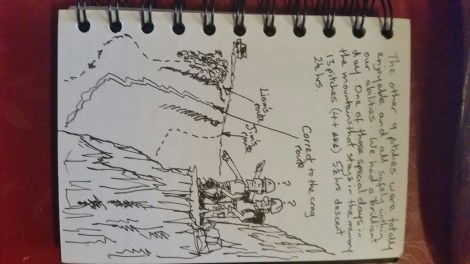 The other 9 pitches were totally
enjoyable and all safely within
our abilities. We had a brilliant
day. One of those special days in
the mountains that stays in the memory
13 pitches (4+ ***) 5½ hrs descent
2½ hrs.
Correct to the crag
route
? ?
route
route